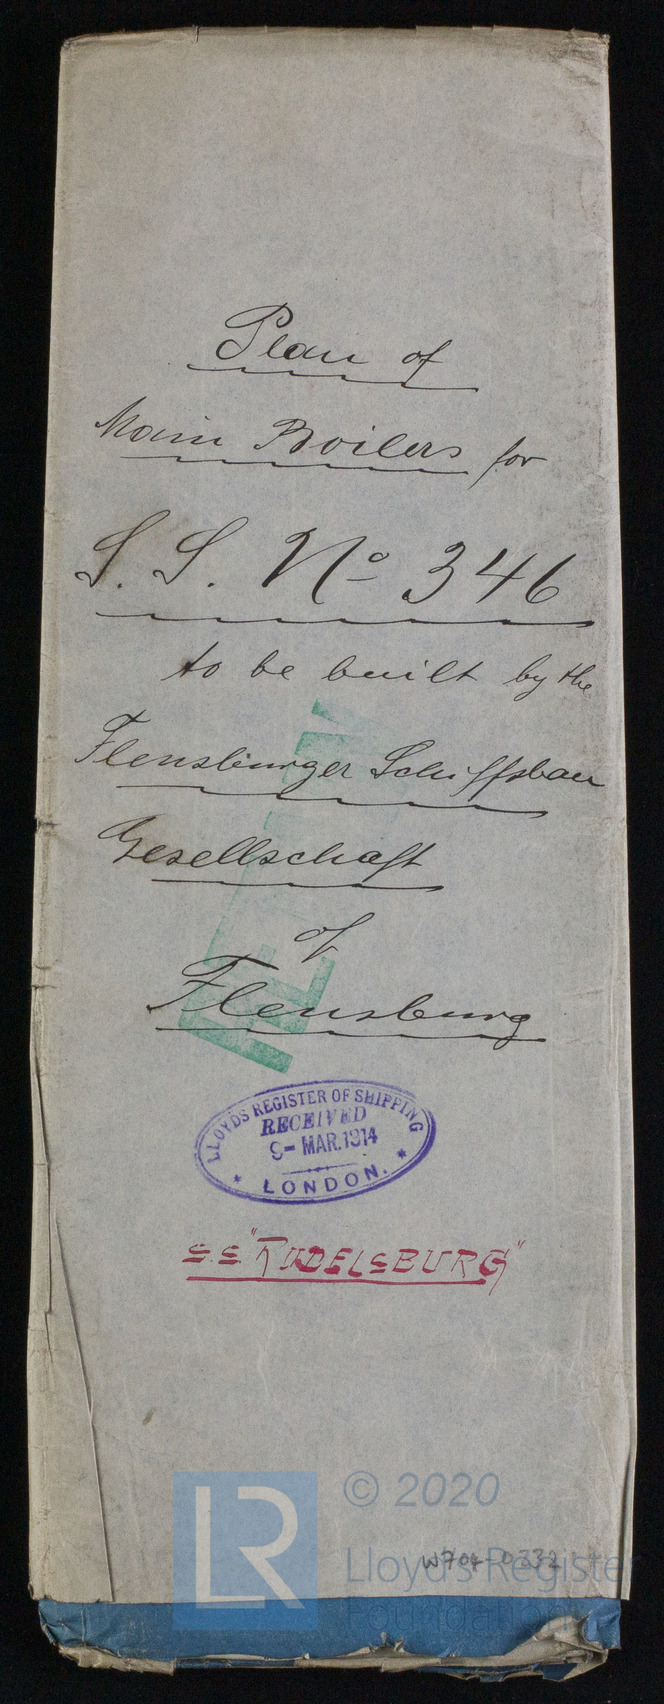 Plan of
Main Boilers for
S. S. Nº 346
to be built by the
Flensburger Schiffsbau
Gesellschaft
of
Flensburg
LLOYDS REGISTER OF SHIPPING
RECEIVED
9- MAR. 1914
LONDON.
S.S. "RUDELSBURG"
LR
© 2020
Lloyd's Register
Foundation
W704-0332